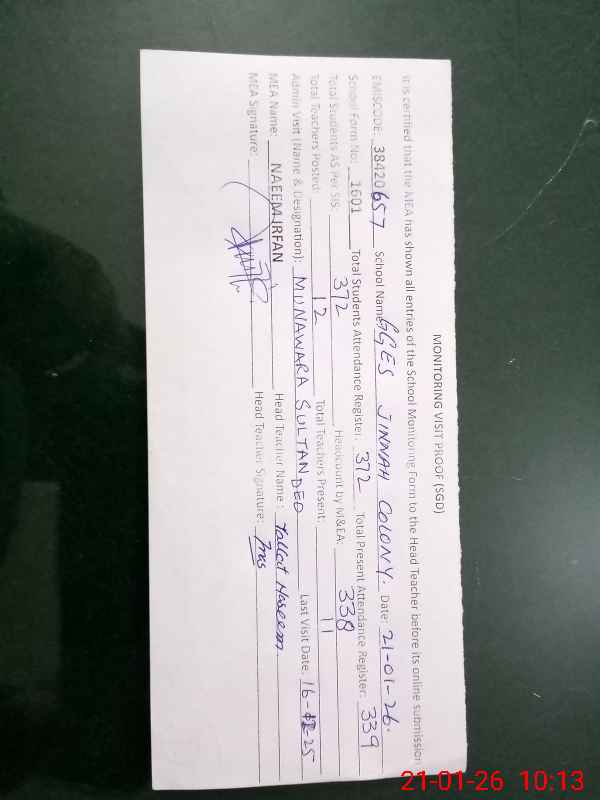 MONITORING VISIT PROOF (SGD)
It is certified that the MEA has shown all entries of the School Monitoring Form to the Head Teacher before its online submission
EMISCODE: 38420657 School Name: GGES JINNAH COLONY. Date: 21-01-26.
School Form No: 1601 Total Students Attendance Register: 372 Total Present Attendance Register: 339
Total Students AS Per SIS: 372 Headcount by M&EA: 338
Total Teachers Posted: 12 Total Teachers Present: 11
Admin Visit (Name & Designation): MUNAWARA SULTAN DEO Last Visit Date: 16-12-25
MEA Name: NAEEM IRFAN Head Teacher Name: Tallat Haseem.
MEA Signature: Head Teacher Signature:
21-01-26 10:13